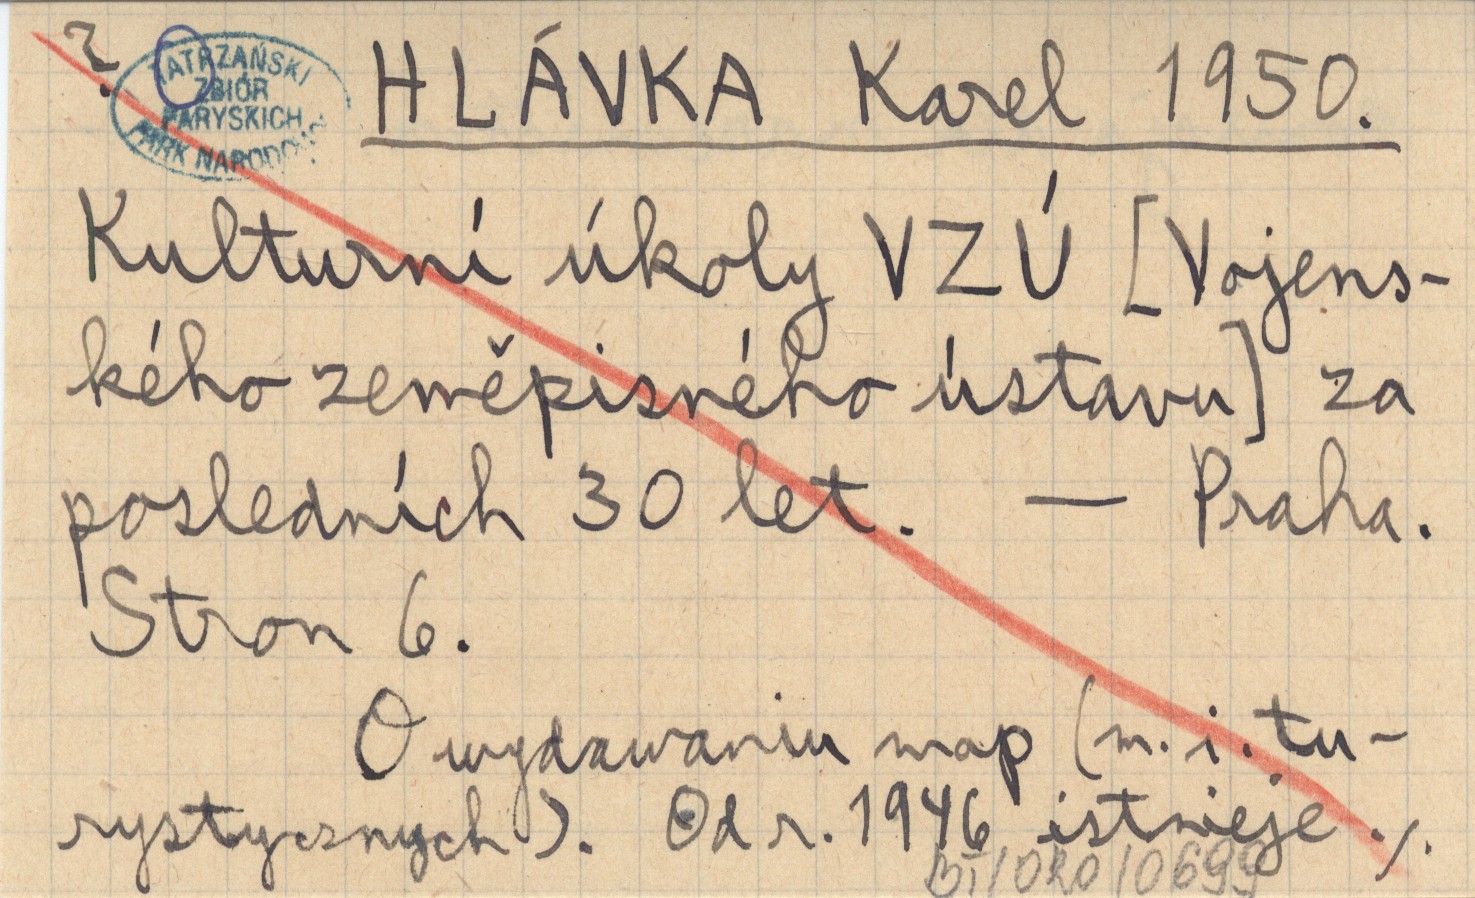 ?
TATRZAŃSKI
ZBIÓR
PARYSKICH
PARK NARODOWY
HLÁVKA Karel 1950.
Kulturní úkoly VZÚ [Vojens-
kého zeměpisného ústavu] za
posledních 30 let. — Praha.
Stron 6.
O wydawaniu map (m. i. tu-
rystycznych). Od r. 1946 istnieje ./.
BT/ORO/0699